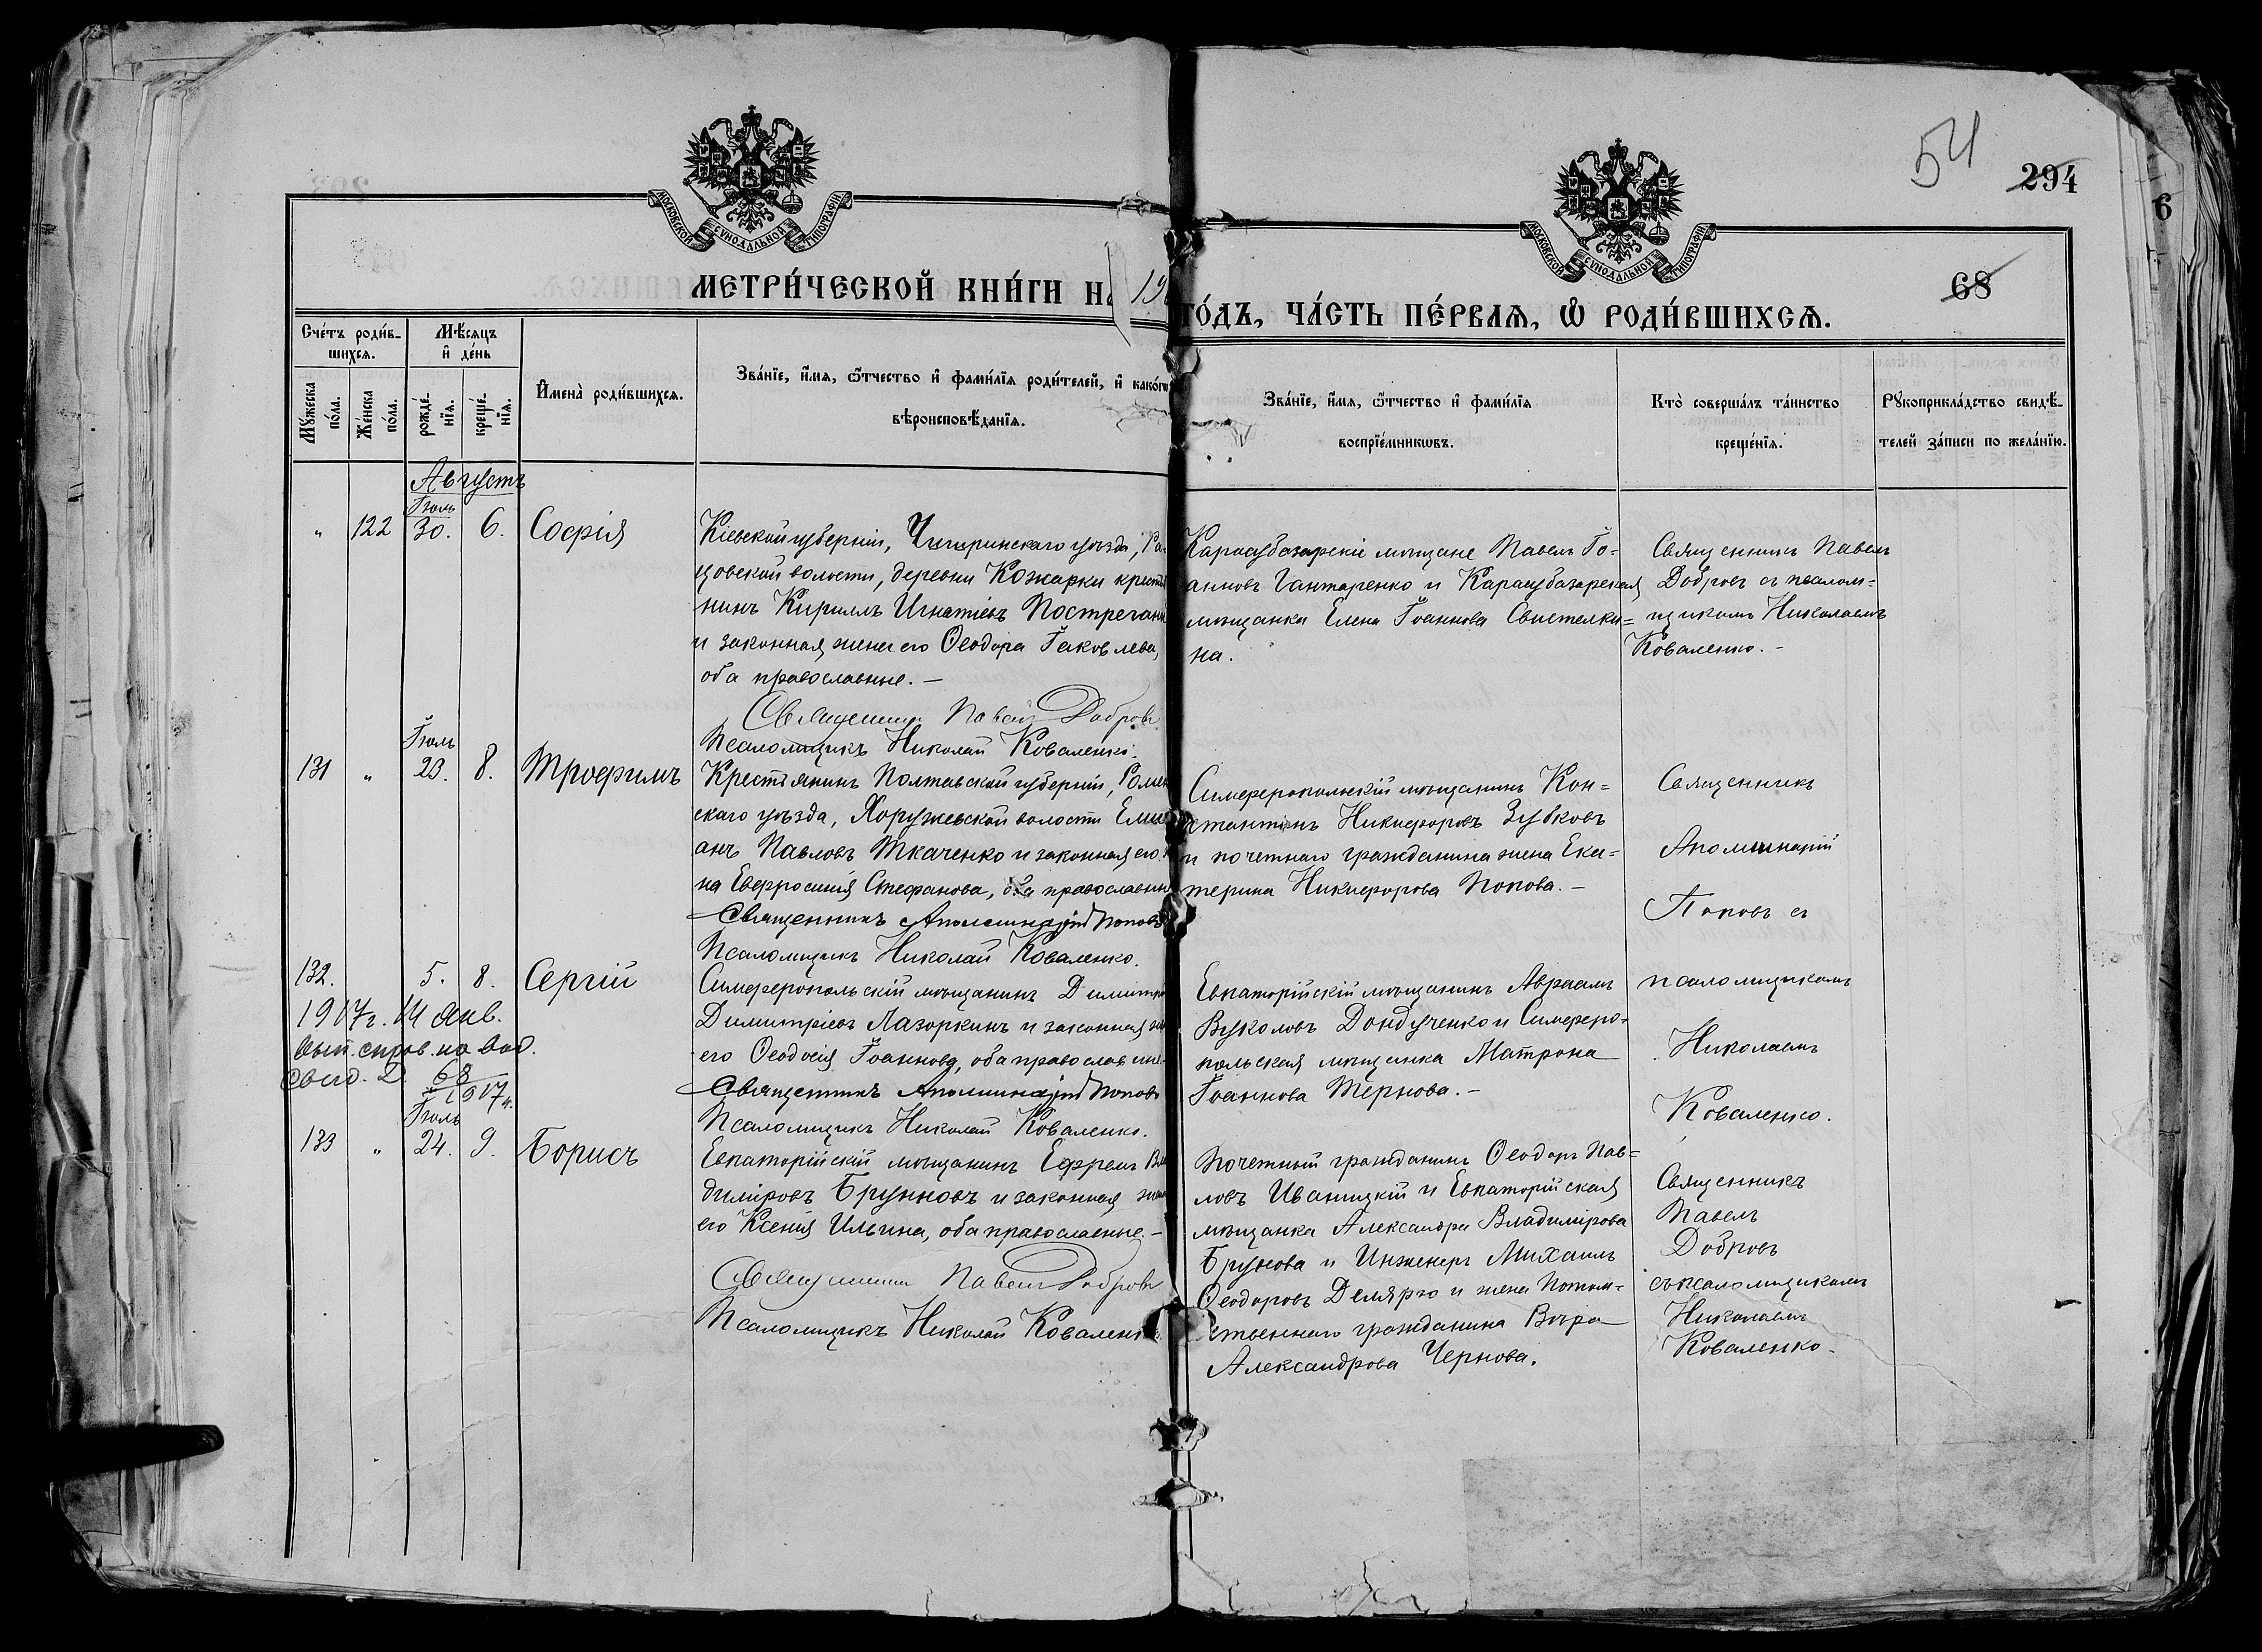 МОСКОВСКОЙ СУНОДАЛЬНОЙ ТИПОГРАФІИ
МОСКОВСКОЙ СУНОДАЛЬНОЙ ТИПОГРАФІИ
54
294
6
68
МЕТРИ́ЧЕСКОЙ КНИ́ГИ НА 19
ГО́ДЪ, ЧА́СТЬ ПЕ́РВАѦ, Ѡ҆ РОДИ́ВШИХСѦ.
Сче́тъ роди́в-
шихсѧ.
Мѣ́сѧцъ
и҆ де́нь
Мꙋ́жеска
по́ла.
Же́нска
по́ла.
рожде́-
нїѧ.
креще́-
нїѧ.
И҆мена̀ роди́вшихсѧ.
Зва́нїе, и҆́мѧ, ѻ҆́тчество и҆ фами́лїѧ роди́телей, и҆ како́гѡ
вѣроисповѣ́данїѧ.
Зва́нїе, и҆́мѧ, ѻ҆́тчество и҆ фами́лїѧ
воспрїе́мникѡвъ.
Кто̀ соверша́лъ та́инство
креще́нїѧ.
Рꙋкоприкла́дство свидѣ́-
телей за́писи по жела́нїю.
Августъ
Іюль
" 122 30. 6. Софія
Кіевской губерніи, Чигиринскаго уѣзда, Ра-
цовской волости, деревни Кожарки крестья
нинъ Кириллъ Игнатіевъ
и законная жена его Ѳеодора Іаковлева,
оба православные. —
Священникъ Павелъ Добровъ
Псаломщикъ Николай Коваленко.
Карасубазарскіе мѣщане Павелъ Іо-
анновъ Гантаренко и Карасубазарская
мѣщанка Елена Іоаннова Свистелки=
на.
Священникъ Павелъ
Добровъ съ псалом=
щикомъ Николаемъ
Коваленко. -
Іюль
131 " 23. 8. Трофимъ
Крестьянинъ Полтавской губерніи, Ромен
скаго уѣзда, Хоружевской волости Емили
анъ Павловъ Ткаченко и законная его же
на Евфросинія Стефанова, оба православны
Священникъ Аполлинарій Поповъ
Псаломщикъ Николай Коваленко.
Симферопольскій мѣщанинъ Кон=
стантинъ Никифоровъ Зубковъ
и почетнаго гражданина жена Ека=
терина Никифорова Попова. —
Священникъ
Аполлинарій
Поповъ съ
псаломщикомъ
Николаемъ
Коваленко.
132. 5. 8. Сергій
1917г. 14 Янв.
выд.
свид. 68
1917г.
Симферопольскій мѣщанинъ Димитрій
Димитріевъ Лазоркинъ и законная же
его Ѳеодосія Іоаннова, оба православные
Священникъ Аполлинарій Поповъ
Псаломщикъ Николай Коваленко.
Евпаторійскій мѣщанинъ Авраамъ
Вуколовъ Дондученко и Симферо=
польская мѣщанка Матрона
Іоаннова Тернова. —
Іюль
133 " 24. 9. Борисъ
Евпаторійскій мѣщанинъ Ефремъ Вла
диміровъ Брунновъ и законная жена
его Ксенія Ильина, оба православные. —
Священникъ Павелъ Добровъ
Псаломщикъ Николай Коваленко
Почетный гражданинъ Ѳеодоръ Пав=
ловъ Иваницкій и Евпаторійская
мѣщанка Александра Владимірова
Брунова и Инженеръ Михаилъ
Ѳеодоровъ Делярю и жена Потом=
ственнаго гражданина Вѣра
Александрова Чернова.
Священникъ
Павелъ
Добровъ
съ псаломщикомъ
Николаемъ
Коваленко.